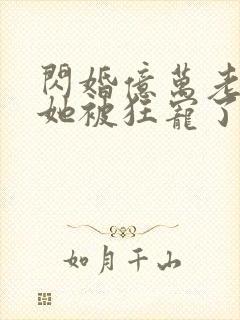 閃婚億萬老
她被狂寵了
如月千山